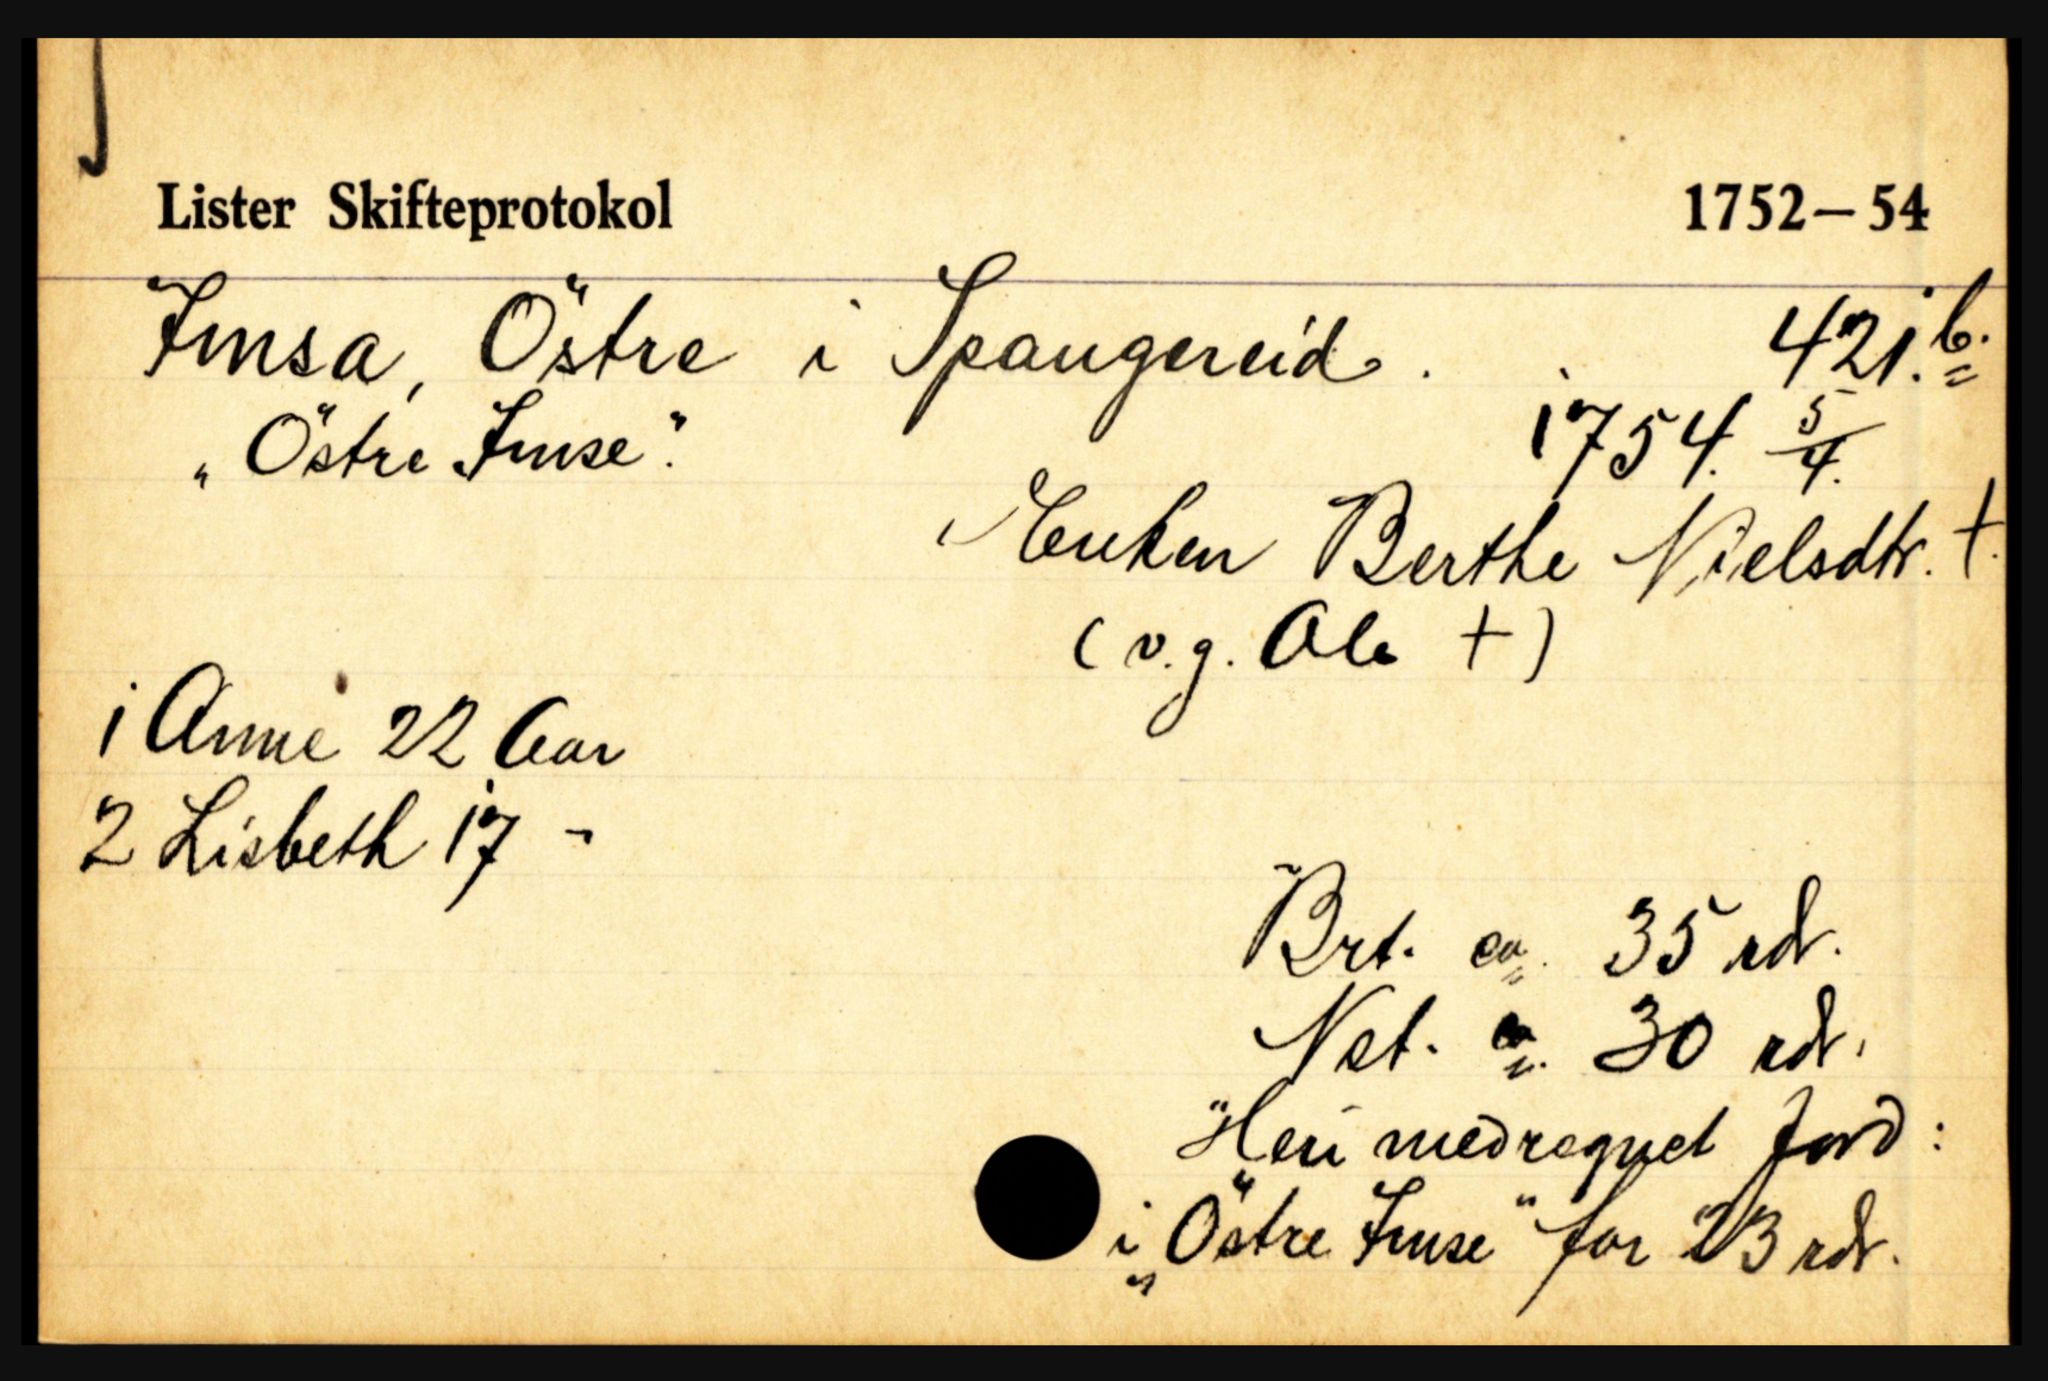 Lister Skifteprotokol 1752-54
Imsa, Östre i Spangereid. 421.b.
„Östre Imse". 1754. 5/4.
Enken Berthe Nielsdtr. †.
(v.g. Ole †)
1 Anne 22 Aar
2 Lisbeth 17 -
Brt. ca. 35 rdr.
Net. ca. 30 rdr.
Heri medregnet Jord:
i „Östre Imse" for 23 rdr.